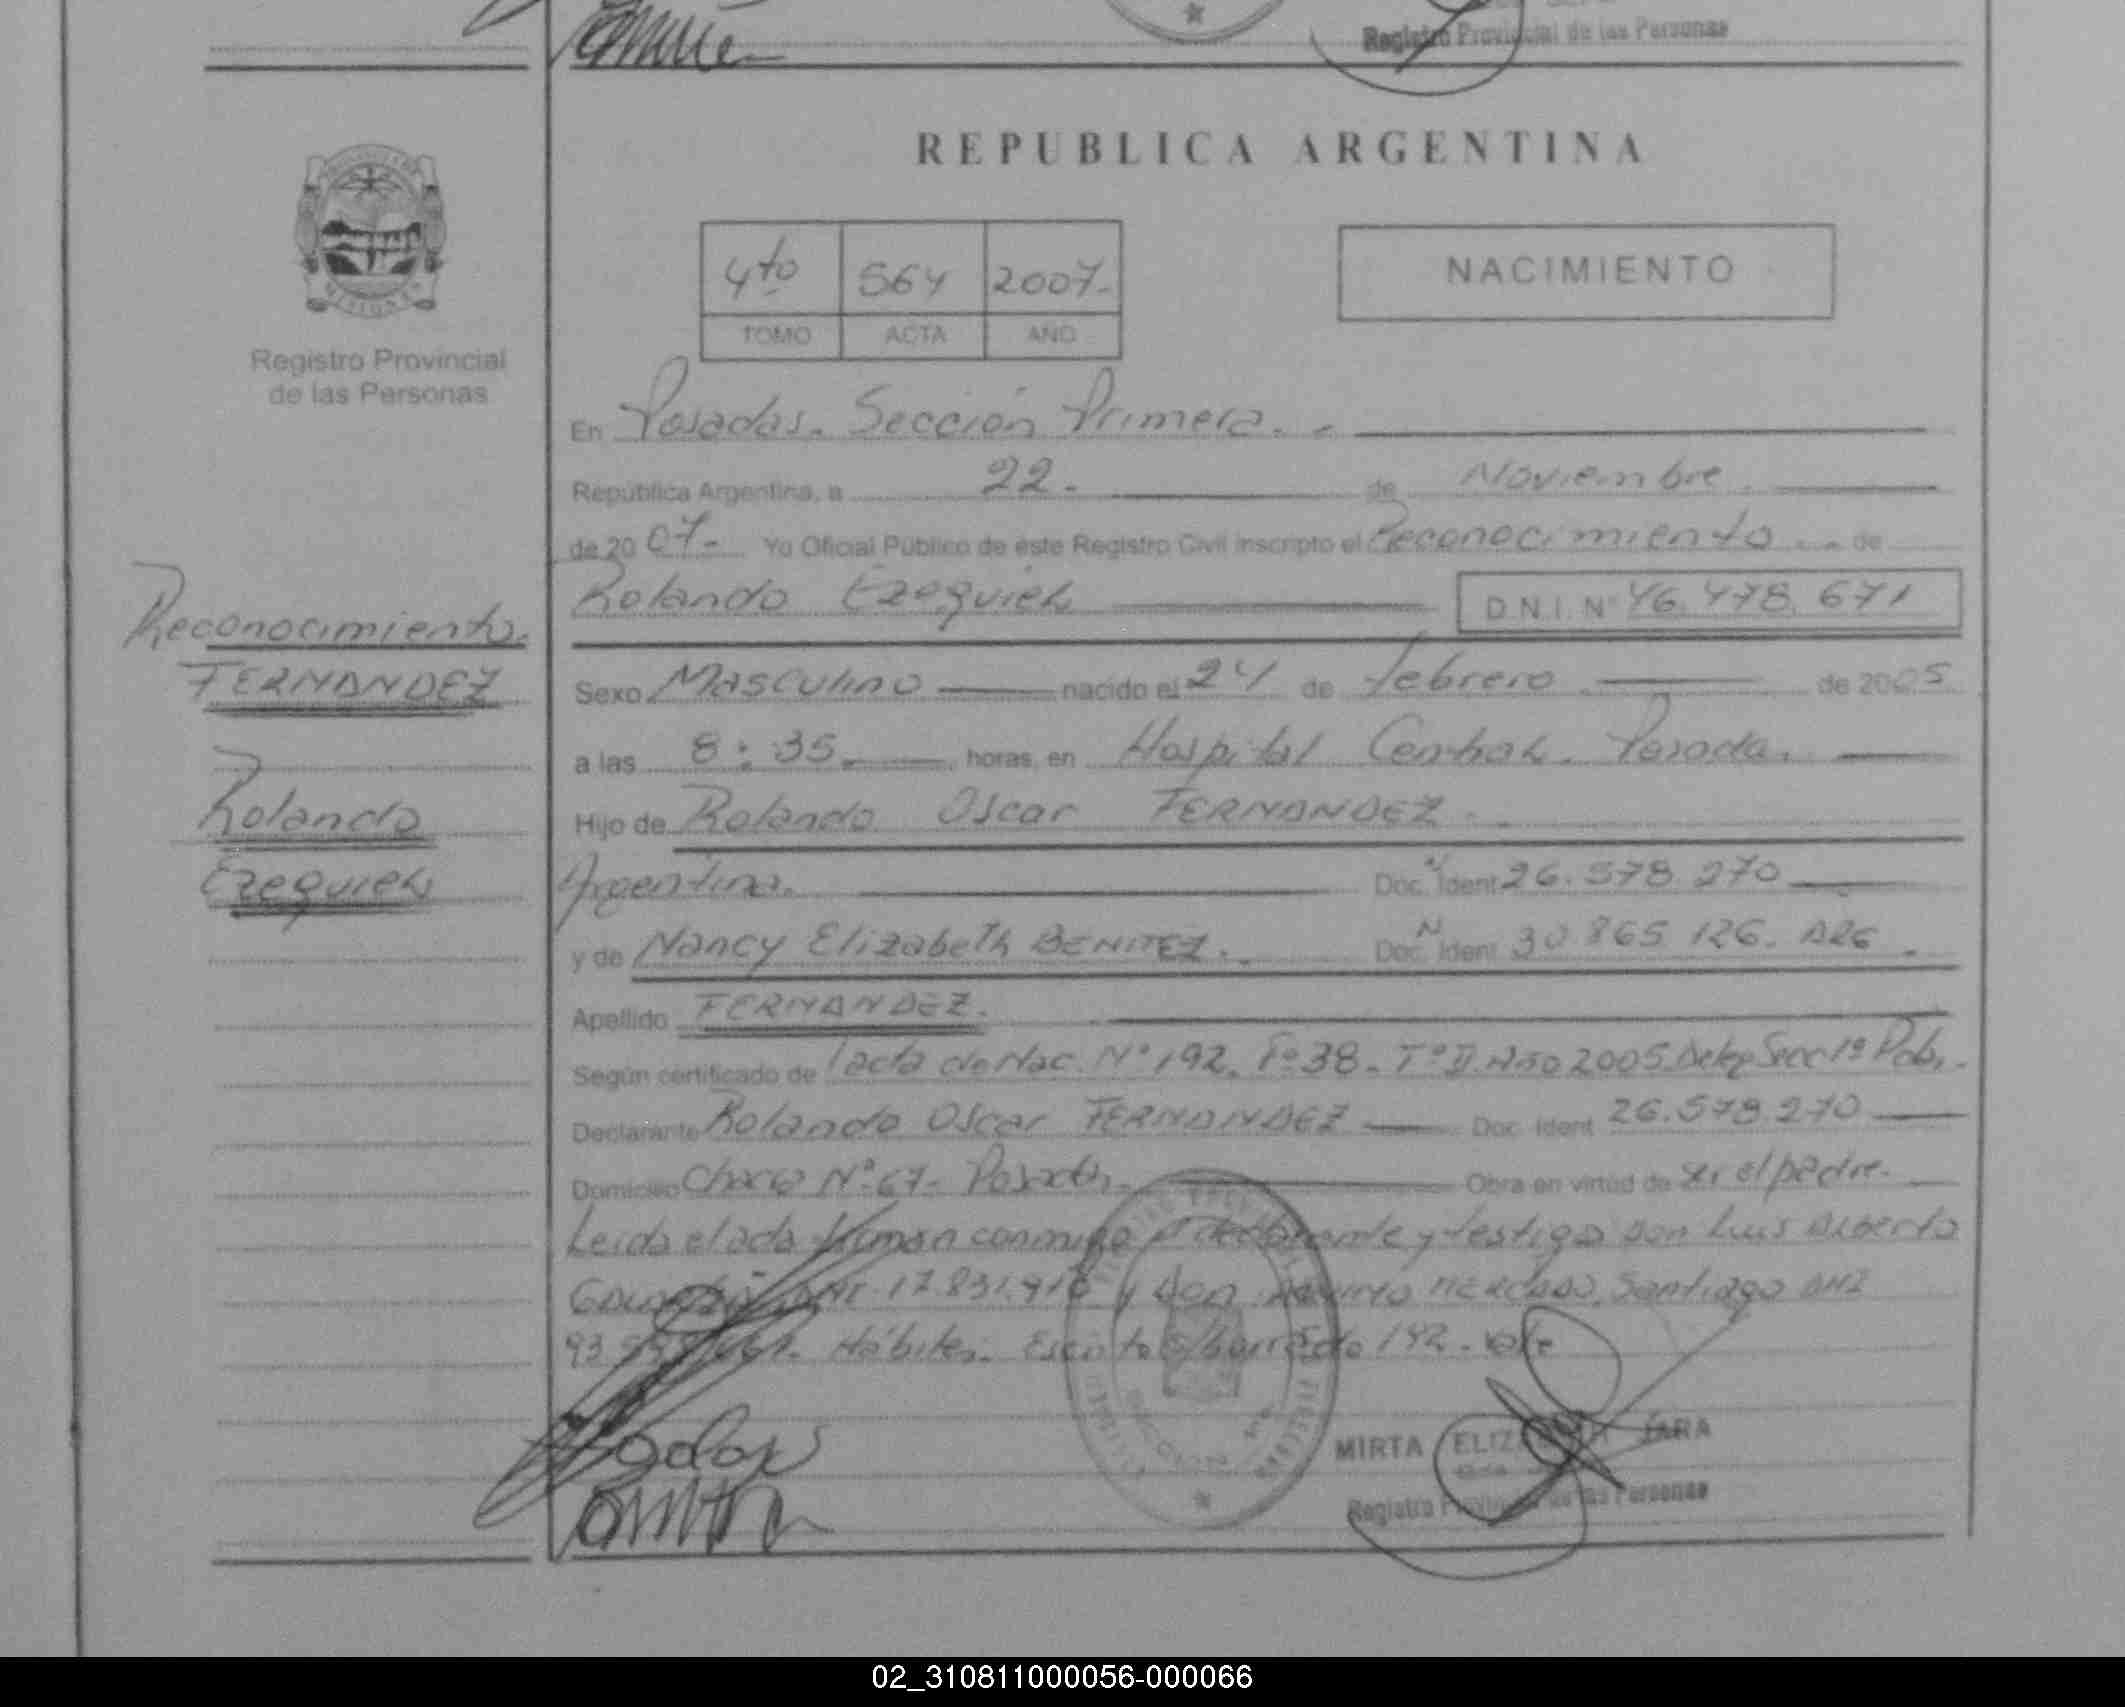 Registro Provincial de las Personas
REPUBLICA ARGENTINA
4to 564 2007.-
TOMO ACTA AÑO
NACIMIENTO
MISIONES
Registro Provincial
de las Personas
En Posadas. Sección Primera. -
República Argentina, a 22. - de Noviembre.
de 20 07.- Yo Oficial Público de este Registro Civil inscripto el Reconocimiento .. de
Rolando Ezequiel D.N.I. Nº 46.478.671
Reconocimiento.
FERNANDEZ
Rolando
Ezequiel
Sexo Masculino nacido el 24 de febrero de 2005
a las 8:35. horas, en Hospital Central. Posadas.
Hijo de Rolando Oscar FERNANDEZ.
Argentina. Doc. N Ident 26.578.270
y de Nancy Elizabeth BENITEZ. Doc. N Ident 30.865.126. ARG.
Apellido FERNANDEZ.
Según certificado de /acta de Nac. Nº 192. Fº 38. Tº II. Año 2005. Secc 1º
Declarante Rolando Oscar FERNANDEZ Doc. Ident 26.578.270
Domicilio Chacra Nº 67- Posadas. Obra en virtud de ser el padre.
Leida el acta firman conmigo declarante y testigo don Luis Alberto
17.831.916 y don MERCADO, Santiago DNI
93. Hábiles. Escrito s/borrado 192. vale
MIRTA ELIZABETH JARA
Registro Provincial de las Personas
02_310811000056-000066